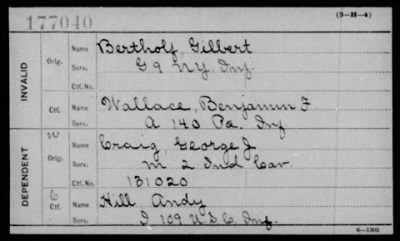 177040
(3-H-4)
INVALID
Orig. Name Bertholf, Gilbert
Serv. G 9 N.Y. Inf.
Ctf. No.
Ctf. Name Wallace, Benjamin F
Serv. A 140 Pa. Inf
DEPENDENT
W Orig. Name Craig, George J
Serv. M 2 Ind Cav.
Ctf. No. 131020
C Ctf. Name Hill Andy
Serv. I 109 U.S.C. Inf.